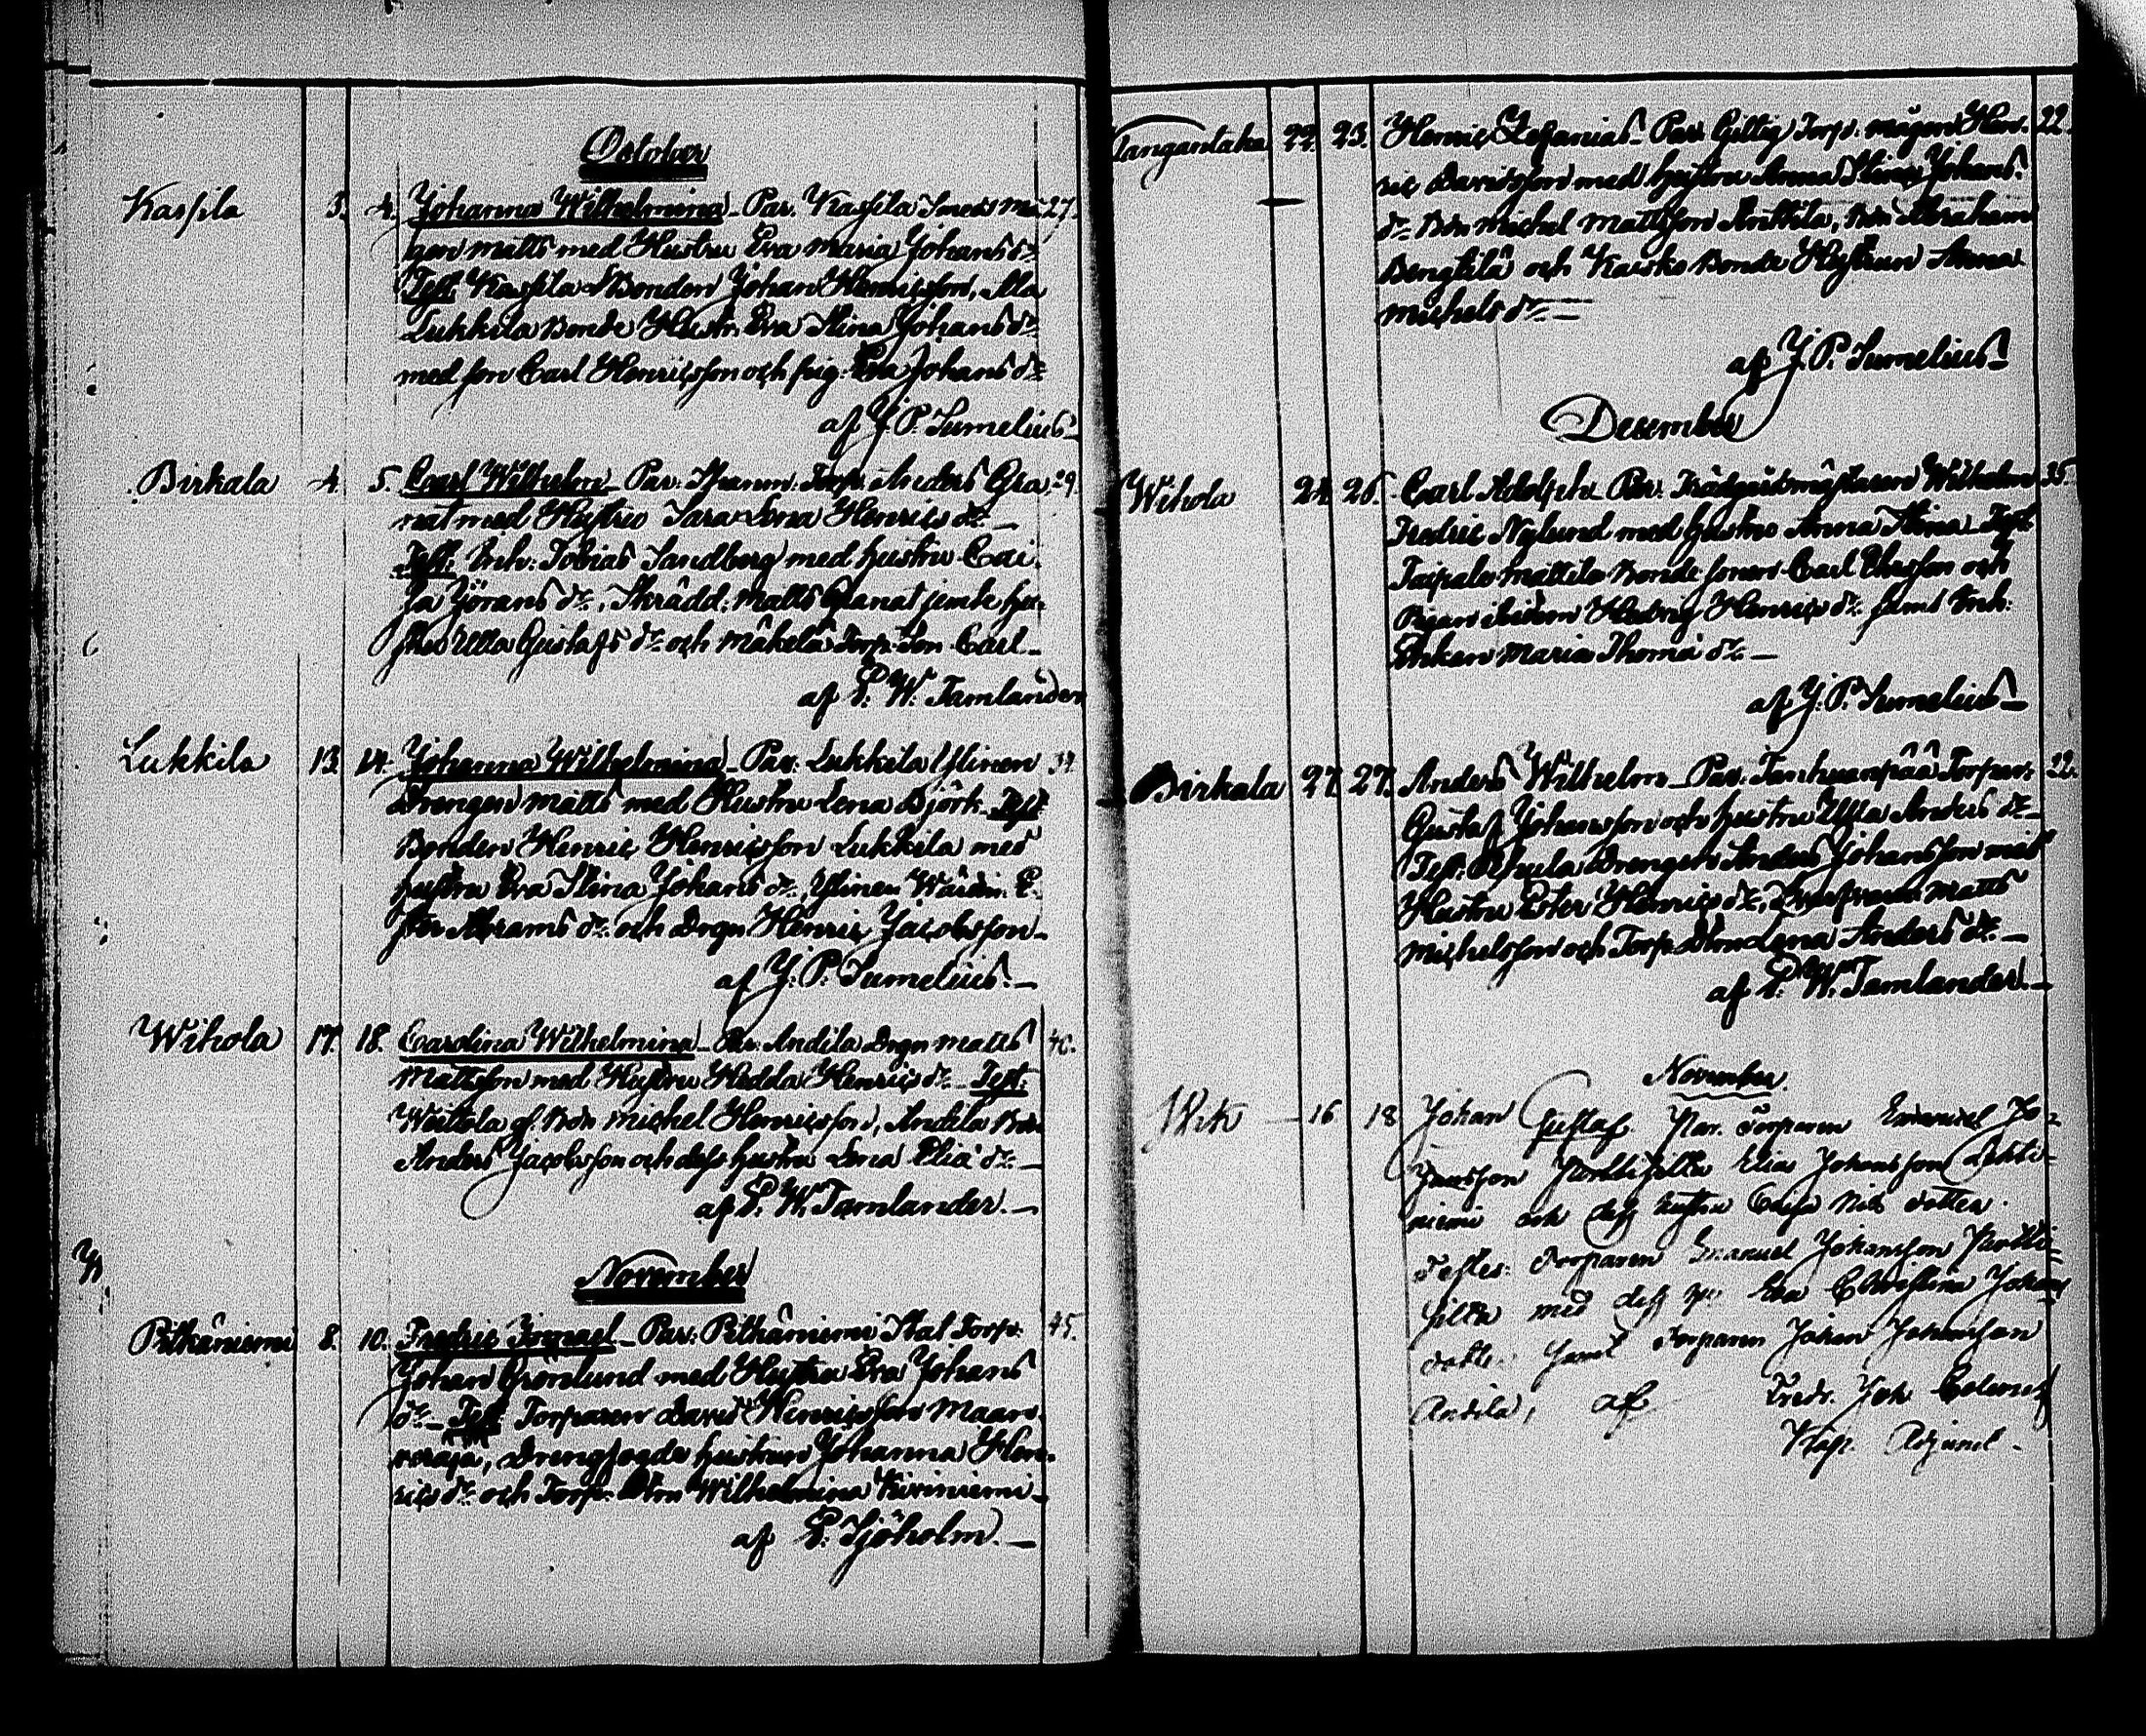 October
Kassila 3. 4. Johanna Wilhelmina_ Par. Kassila Smeds må 27.
gen Matts med Hustru Eva Maria Johans dr
Test. Kassila Bonden Johan Henricsson, Ala
Lukkila Bonde Hustr. Eva Stina Johans dr
med son Carl Henricsson och pig. Eva Johans dr
af J. P. Sumelius_
Birkala 4. 5. Carl Wilhelm_ Par. Torp. Anders Gra 29.
nat med Hustru Sara Lena Henrics dr_
Test. Inh. Tobias Sandberg med hustru Cai
sa Görans dr, Skrädd. Matts Granat jemte hu
stru Ulla Gustafs dr och Mäkelä Torp. Son Carl_
af E. W. Tamlander
Lukkila 13. 14. Johanna Wilhelmina_ Par. Lukkila Ylinen 34.
Drengen Matts med Hustru Lena Björk_ Test.
Bonden Henric Henricsson Lukkila med
hustru Eva Stina Johans dr, Ylinen Wärdin. E
ster Abrams dr och Drgn Henric Jacobsson_
af J. P. Sumelius._
Wihola 17. 18. Carolina Wilhelmina_ Par. Andila Drgn Matts 40.
Mattsson med Hustru Hedda Henrics dr_ Test.
Waitola Bdn Michel Henricsson, Andila Bdn
Anders Jacobsson och dess hustru Lena Eliæ dr_
af E. W. Tamlander._
November
Pitkäniemi 8. 10. Fredric Ismael_ Par. Pitkäniemi Stat Torp. 45.
Johan Grönlund med Hustru Eva Johans
dr_ Test. Torparen David Henricsson Maan
, Drengfogde hustrun Johanna Hen
rics dr och Torp. Dtrn Wilhelmina Kiviniemi_
af E. Sjöholm._
Tangantaka 22. 23. Henric Zefanias_ Par. Giltig Torp. mågen Hen 22.
ric Davidsson med hustru Anna Stina Johans
dr Bdn Michel Mattsson Anttila, Bdn Abraham
Bengtilä och Kaisko Bonde Hustrun Anna
Michels dr_
af J. P. Sumelius_
December
Wihola 24. 26. Carl Adolph_ Par. Trädgårdsmästaren Wilhelm 35.
Fredric Nylund med hustru Anna Stina_ Test.
Taipale Mattila Bonde sonen Carl Ericsson och
Pigan ibidem Hedvig Henrics dr samt Inh.
Enkan Maria Thomæ dr_
af J. P. Sumelius_
Birkala 27. 27. Anders Wilhelm_ Par. Tanhuanpää Torpar. 32.
Gustaf Johansson och hustru Ulla Anders dr_
Test. Drengen Anders Johansson med
Hustru Ester Henrics dr, Matts
Michelsson och Torp. Dtrn Lena Anders dr_
af E. W. Tamlander._
November
16 18 Johan Gustaf Par. Torparen Emanuel Jo
hansson Elias Johansson Lehti
niemi och dess hustru Caisa Nils dotter.
Testes: Torparen Emanuel Johansson
med dess Eva Christina Johans
dotter samt Torparen Johan Johansson
Andila, af Fredr. Joh
Kap. Adjunct.